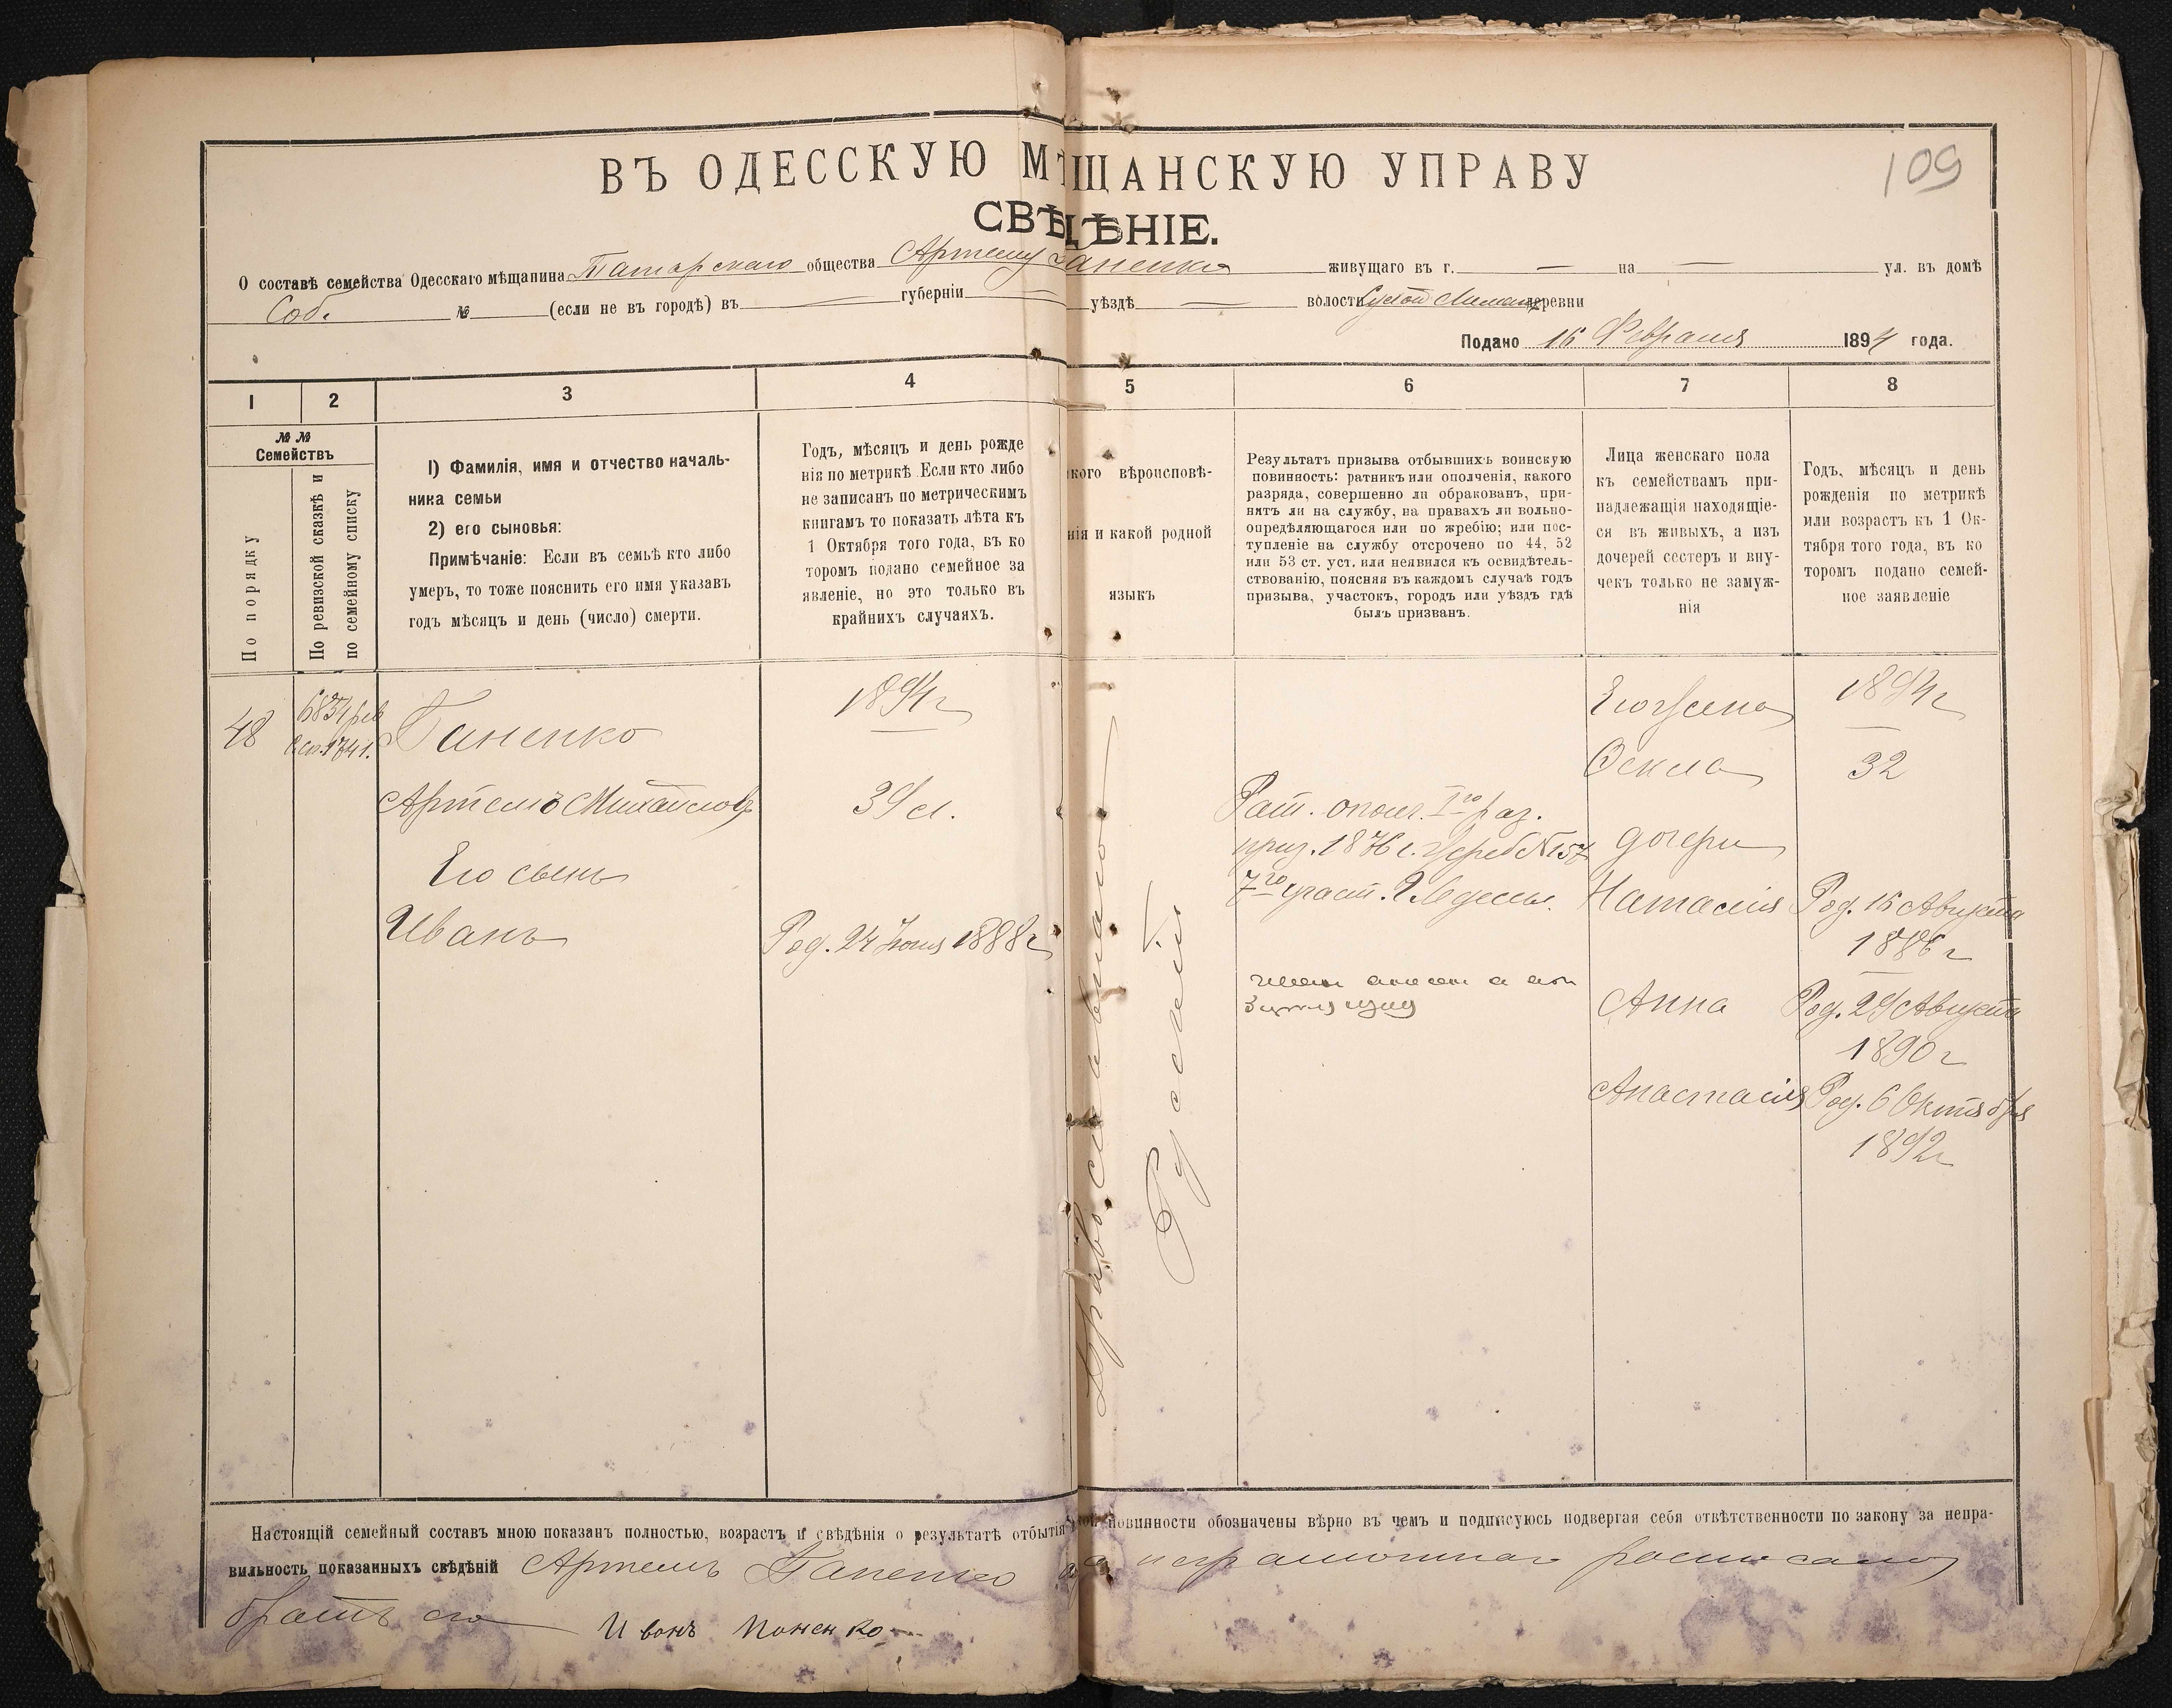 109
ВЪ ОДЕССКУЮ МѢЩАНСКУЮ УПРАВУ
СВѢДѢНІЕ.
О составѣ семейства Одесскаго мѣщанина Татарскаго общества Артему Ганенко живущаго въ г. — на — ул. въ домѣ
Соб. № (если не въ городѣ) въ — губерніи — уѣздѣ — волости Сухой Лиманъ деревни
Подано 16 Февраля 1894 года.
1 2 3 4 5 6 7 8
№ №
Семействъ
По порядку
По ревизской сказкѣ и
по семейному списку
1) Фамилія, имя и отчество началь-
ника семьи
2) его сыновья:
Примѣчаніе: Если въ семьѣ кто либо
умеръ, то тоже пояснить его имя указавъ
годъ мѣсяцъ и день (число) смерти.
Годъ, мѣсяцъ и день рожде
нія по метрикѣ Если кто либо
не записанъ по метрическимъ
книгамъ то показать лѣта къ
1 Октября того года, въ ко
торомъ подано семейное за
явленіе, но это только въ
крайнихъ случаяхъ.
кого вѣроисповѣ-
нія и какой родной
языкъ
Результатъ призыва отбывшихъ воинскую
повинность: ратникъ или ополченія, какого
разряда, совершенно ли обракованъ, при-
нятъ ли на службу, на правахъ ли вольно-
опредѣляющагося или по жребію; или пос-
тупленіе на службу отсрочено по 44, 52
или 53 ст. уст. или неявился къ освидѣтель-
ствованію, поясняя въ каждомъ случаѣ годъ
призыва, участокъ, городъ или уѣздъ гдѣ
былъ призванъ.
Лица женскаго пола
къ семействамъ при-
надлежащія находящіе-
ся въ живыхъ, а изъ
дочерей сестеръ и вну-
чекъ только не замуж-
нія
Годъ, мѣсяцъ и день
рожденія по метрикѣ
или возрастъ къ 1 Ок-
тября того года, въ ко
торомъ подано семей-
ное заявленіе
48
6834 рев
Ганенко
1894 г
Его жена
1894 г
Артемъ Михайловъ
39 л.
Православнаго
Русскій
Рат. опол. I го раз.
приз. 1876 г. жреб № 157
7 го участ. г. Одессы.
Оекла
32
Его сынъ
дочери
Иванъ
Род. 24 Іюня 1888 г
Наталія
Род. 16 Августа
1886 г
Анна
Род. 29 Августа
1890 г
Анастасія
Род. 6 Октября
1892 г
Настоящій семейный составъ мною показанъ полностью, возрастъ и свѣдѣнія о результатѣ отбытія повинности обозначены вѣрно въ чемъ и подписуюсь подвергая себя отвѣтственности по закону за непра-
вильность показанныхъ свѣдѣній Артемъ Ганенко а за неграмотнаго росписался
братъ его Ивонъ Поненко